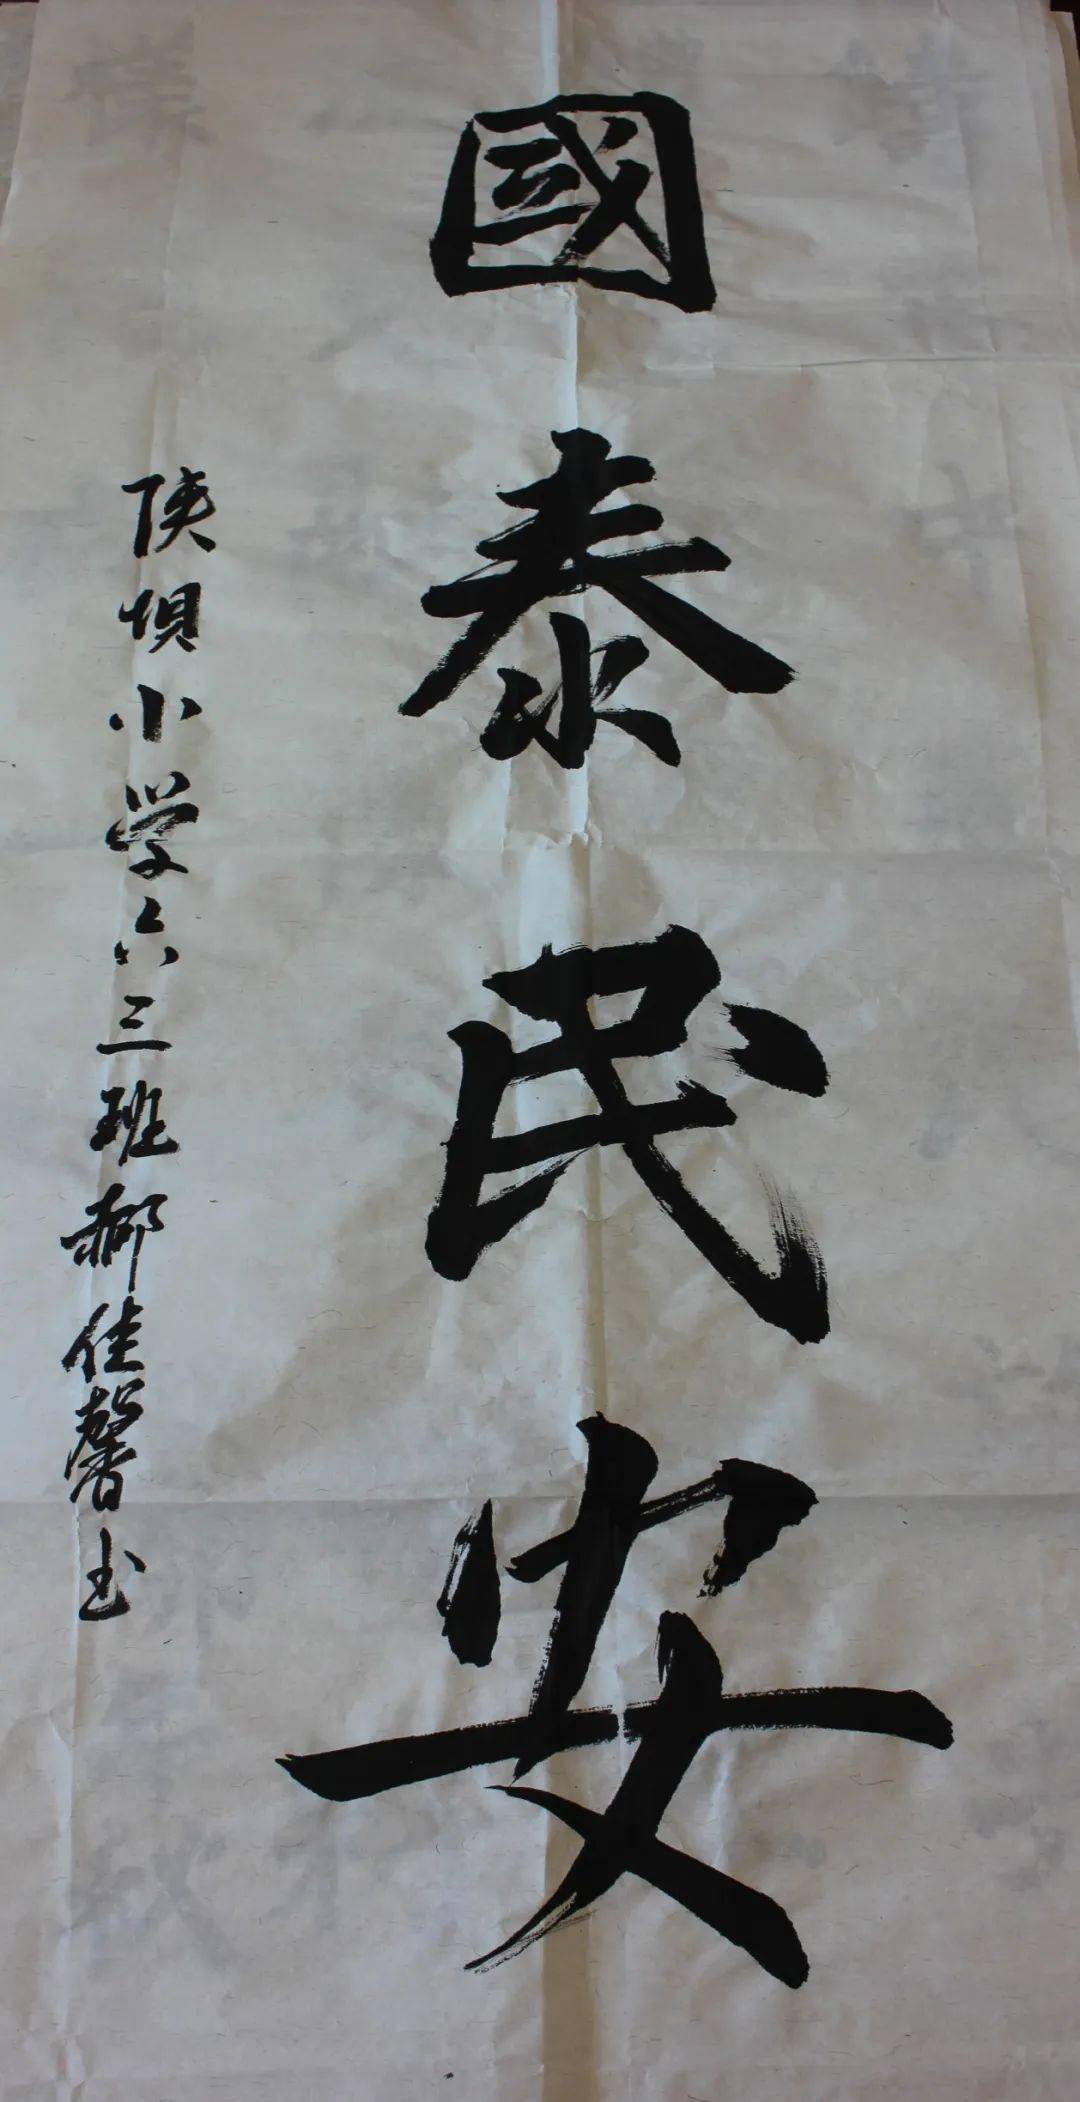 國泰民安
陕坝小学六三班郝佳馨书